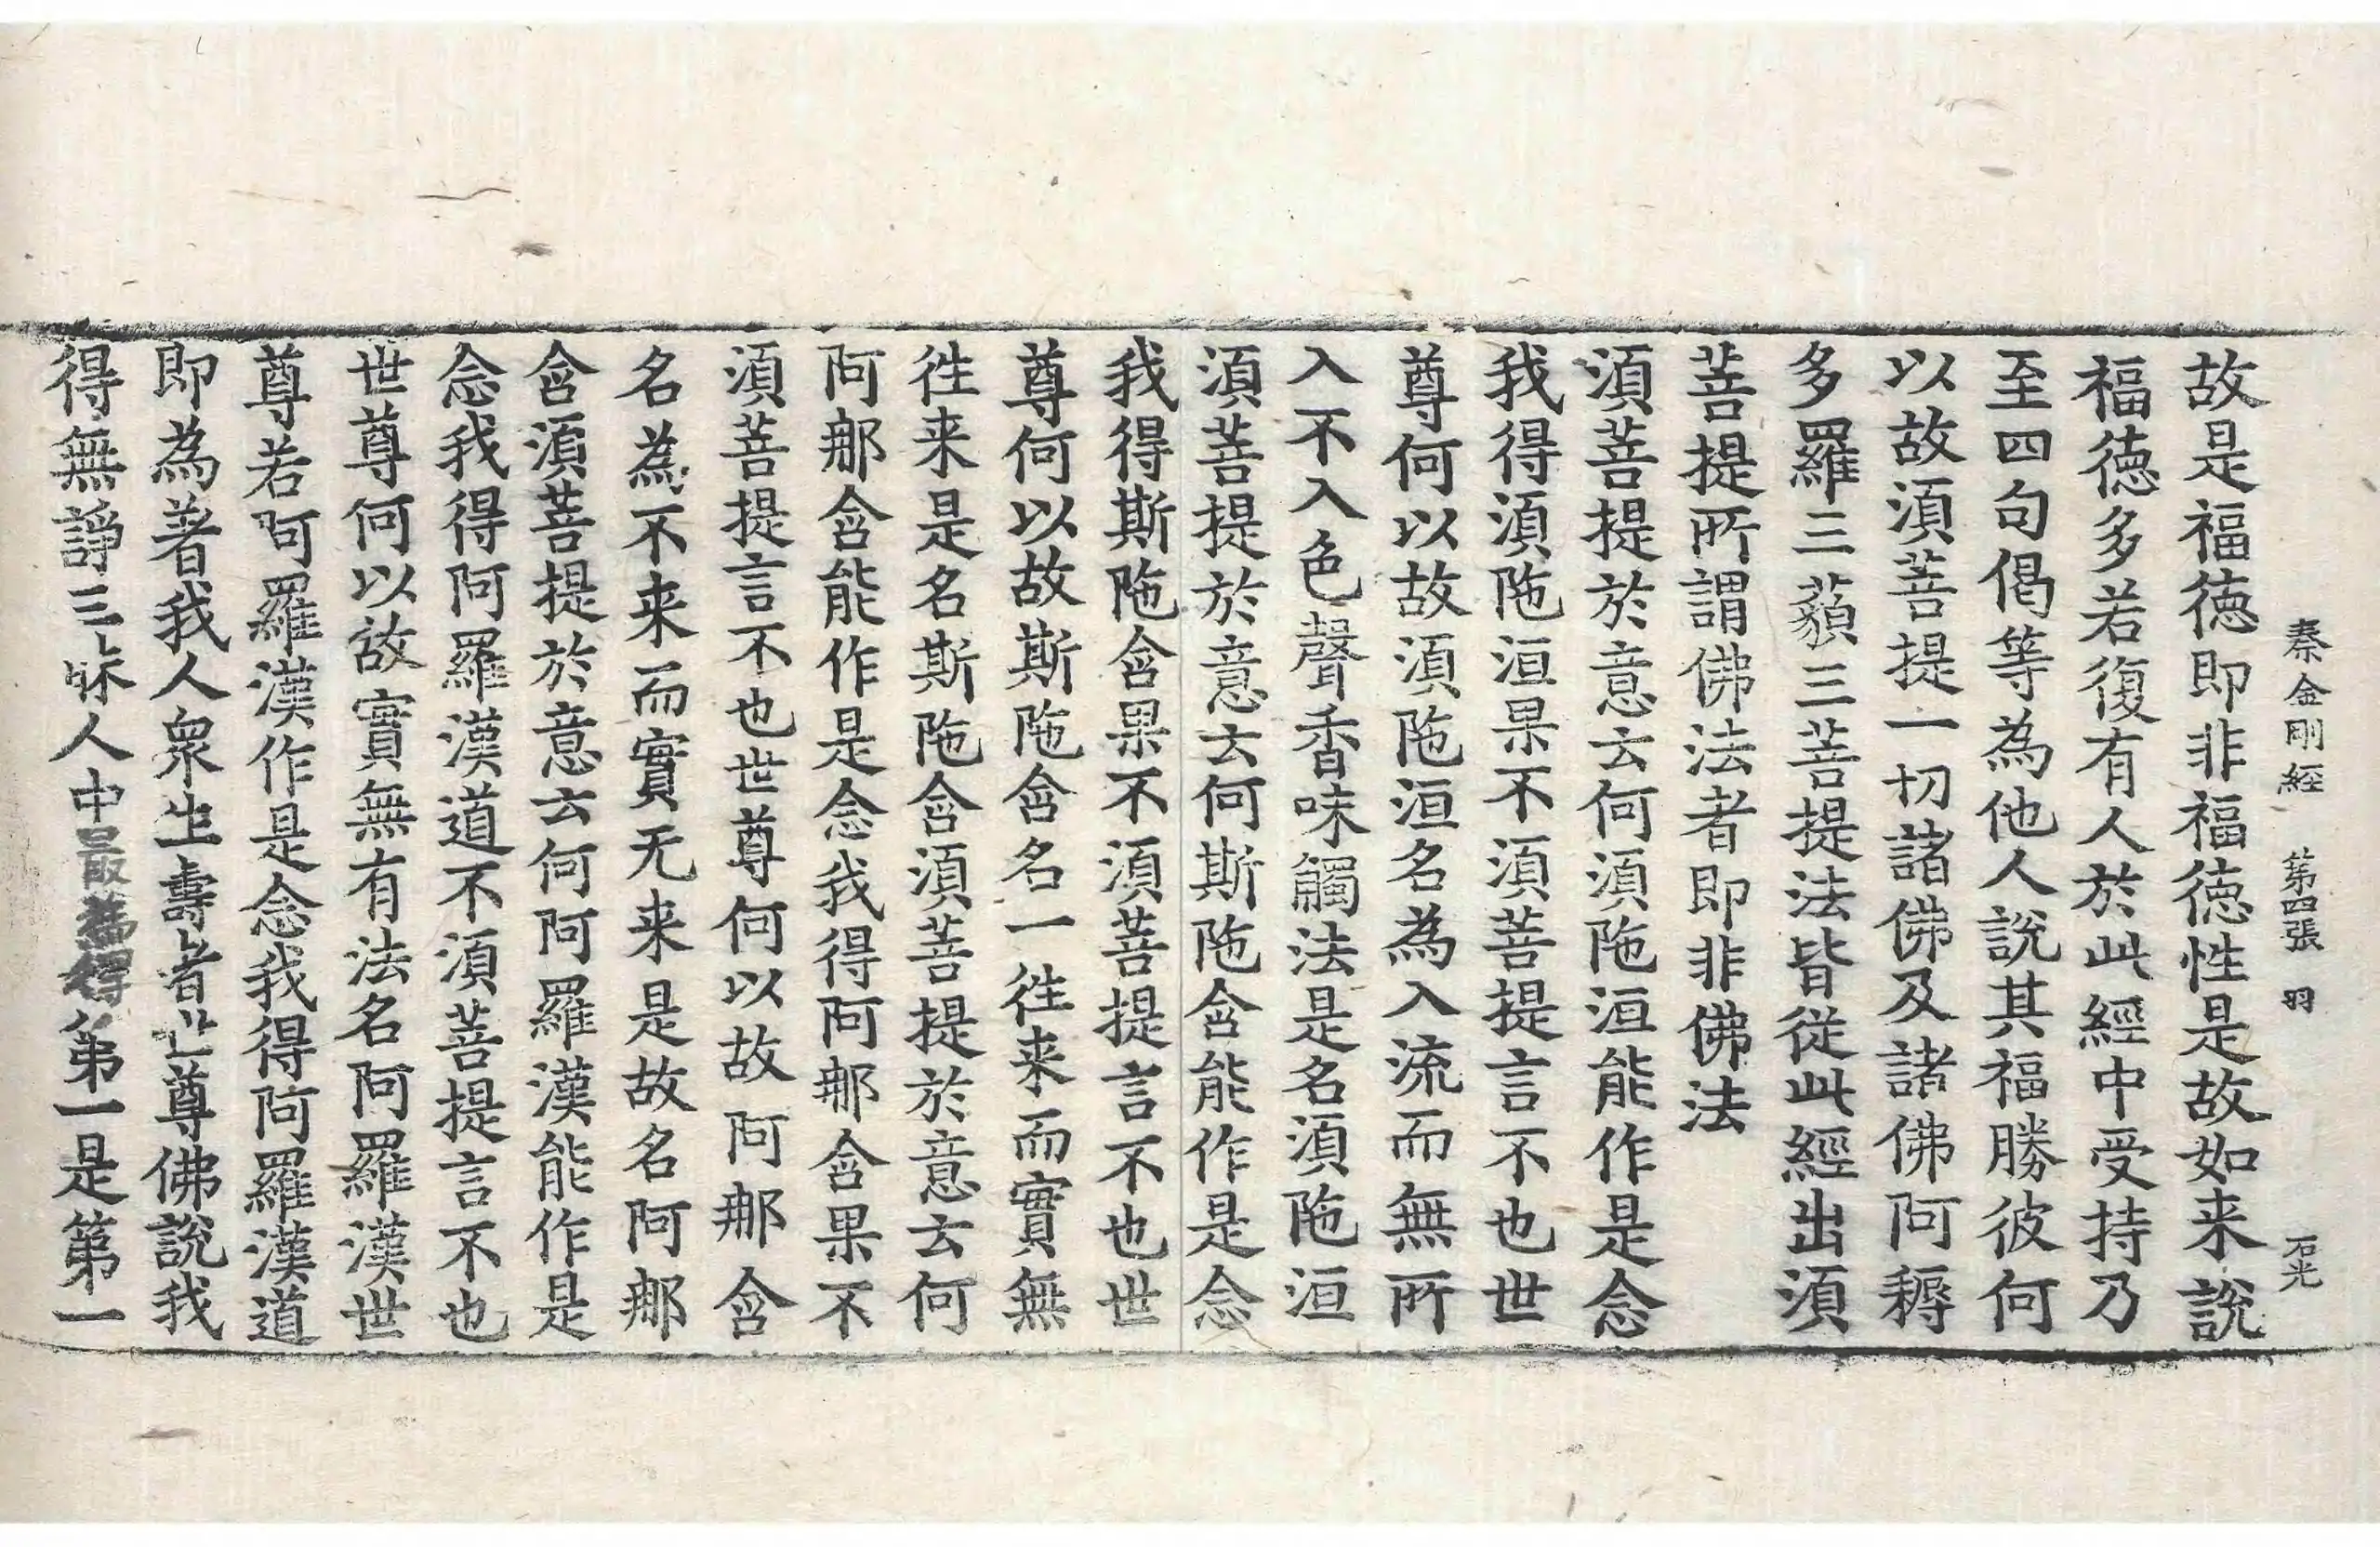 秦金剛經 第四張 羽 石光
故是福德即非福德性是故如来說
福德多若復有人於此經中受持乃
至四句偈等為他人說其福勝彼何
以故須菩提一切諸佛及諸佛阿耨
多羅三藐三菩提法皆從此經出須
菩提所謂佛法者即非佛法
須菩提於意云何須陁洹能作是念
我得須陁洹果不須菩提言不也世
尊何以故須陁洹名為入流而無所
入不入色聲香味觸法是名須陁洹
須菩提於意云何斯陁含能作是念
我得斯陁含果不須菩提言不也世
尊何以故斯陁含名一往来而實無
往来是名斯陁含須菩提於意云何
阿那含能作是念我得阿那含果不
須菩提言不也世尊何以故阿那含
名為不来而實无来是故名阿那
含須菩提於意云何阿羅漢能作是
念我得阿羅漢道不須菩提言不也
世尊何以故實無有法名阿羅漢世
尊若阿羅漢作是念我得阿羅漢道
即為著我人衆生壽者世尊佛說我
得無諍三昧人中最為第一是第一